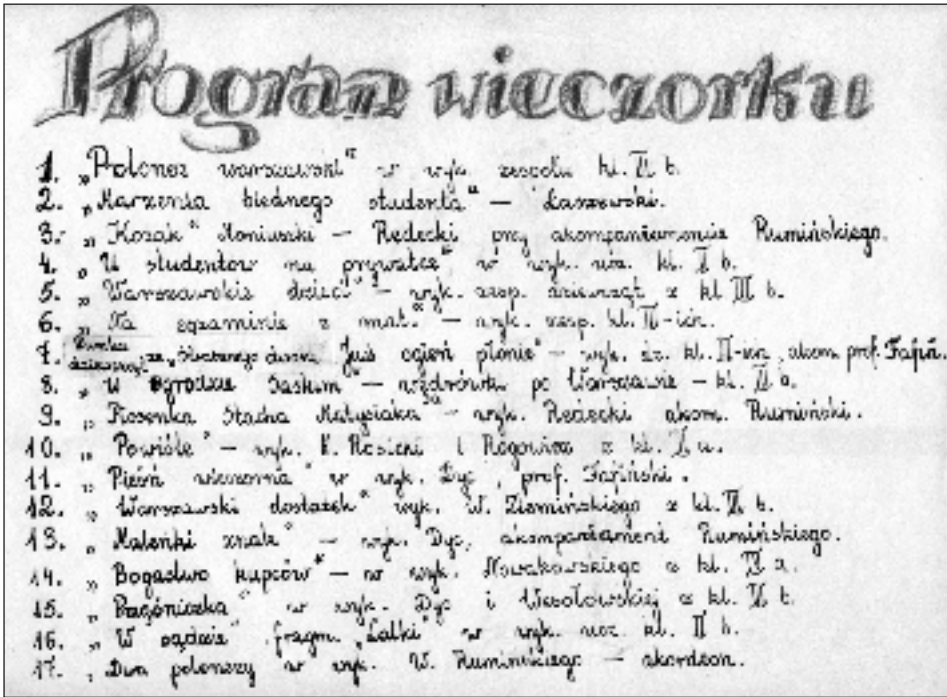 Program wieczorku
1. „Polonez warszawski" w wyk. zespołu kl. II b.
2. „Marzenia biednego studenta" — Łaszewski.
3. „Kozak" Moniuszki — Redecki przy akompaniamencie Rumińskiego.
4. „U studentów na prywatce" w wyk. ucz. kl. X b.
5. „Warszawskie dzieci" — wyk. zesp. dziewcząt z kl. III b.
6. „Na egzaminie z mat." — wyk. zesp. kl. II-ich.
7. „Już ogień płonie" — wyk. kl. II-ich, akom. prof. Fafiń.
8. „W ogrodzie Saskim" — wędrówki po Warszawie — kl.
9. „Piosenka Stacha Matysiaka" — wyk. Redecki akom. Rumiński.
10. „Powiśle" — wyk. K. i z kl. X a.
11. „Pieśń wieczorna" w wyk. Dyc, prof. Fafiński.
12. „Warszawski dostatek" wyk. W. Ziemińskiego z kl. b.
13. „Maleńki znak" — wyk. Dyc, akompaniament Rumińskiego.
14. „Bogactwo kupców" — w wyk. Nowakowskiego z kl. a.
15. w wyk. Dyc i Wesołowskiej z kl. b.
16. „W sądzie" fragm. „Lalki" w wyk. ucz. kl. II b.
17. „Dwa polonezy w wyk. W. Rumińskiego — akordeon.